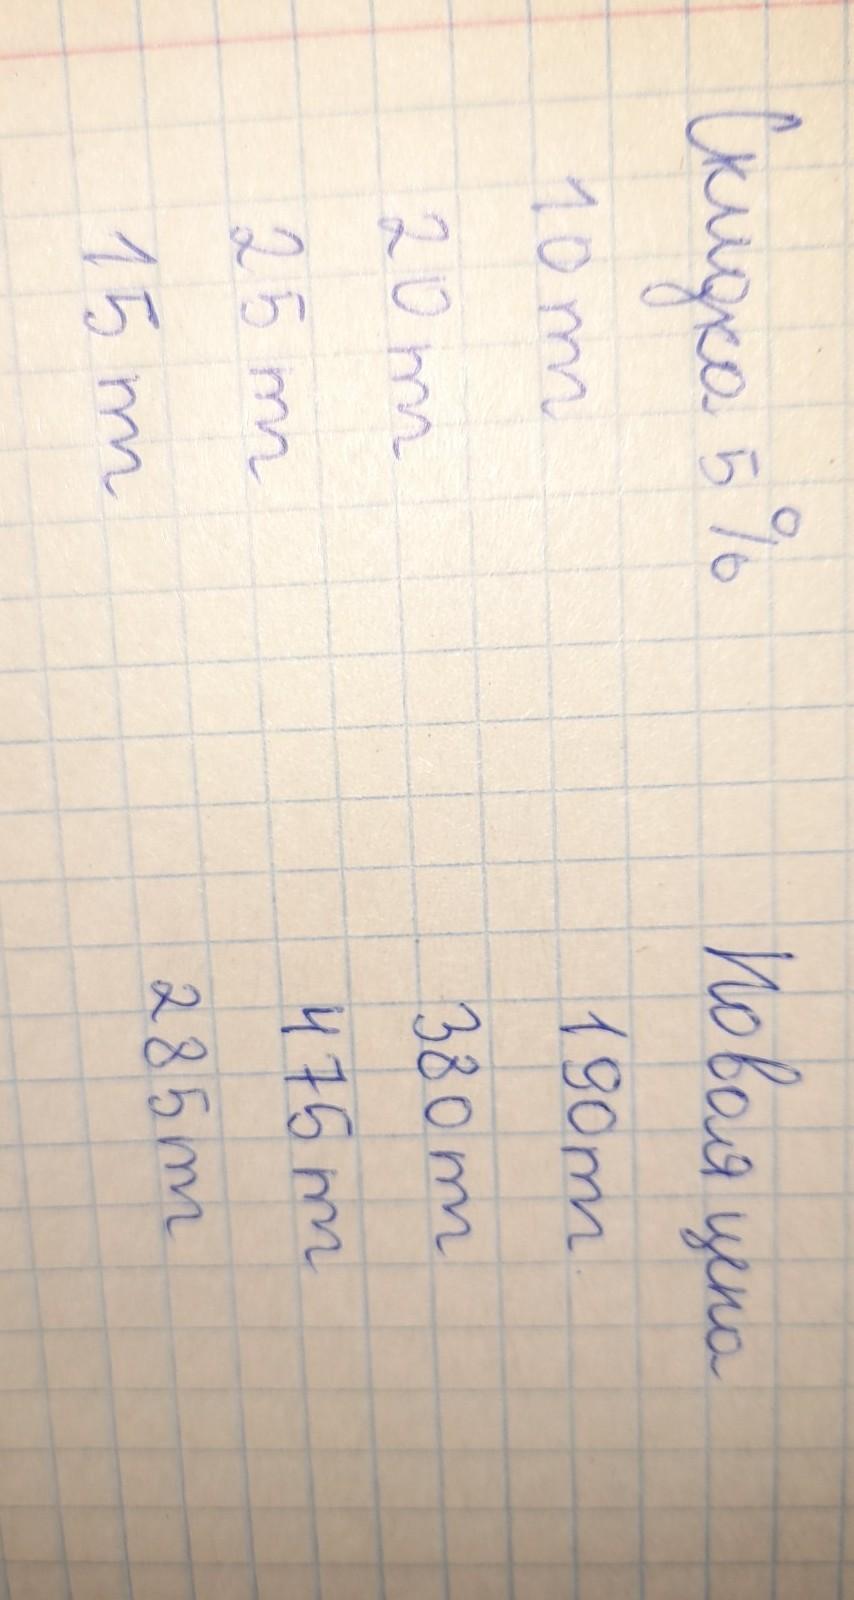 Скидка 5% Новая цена
10 т 190 т
20 т 380 т
25 т 475 т
15 т 285 т